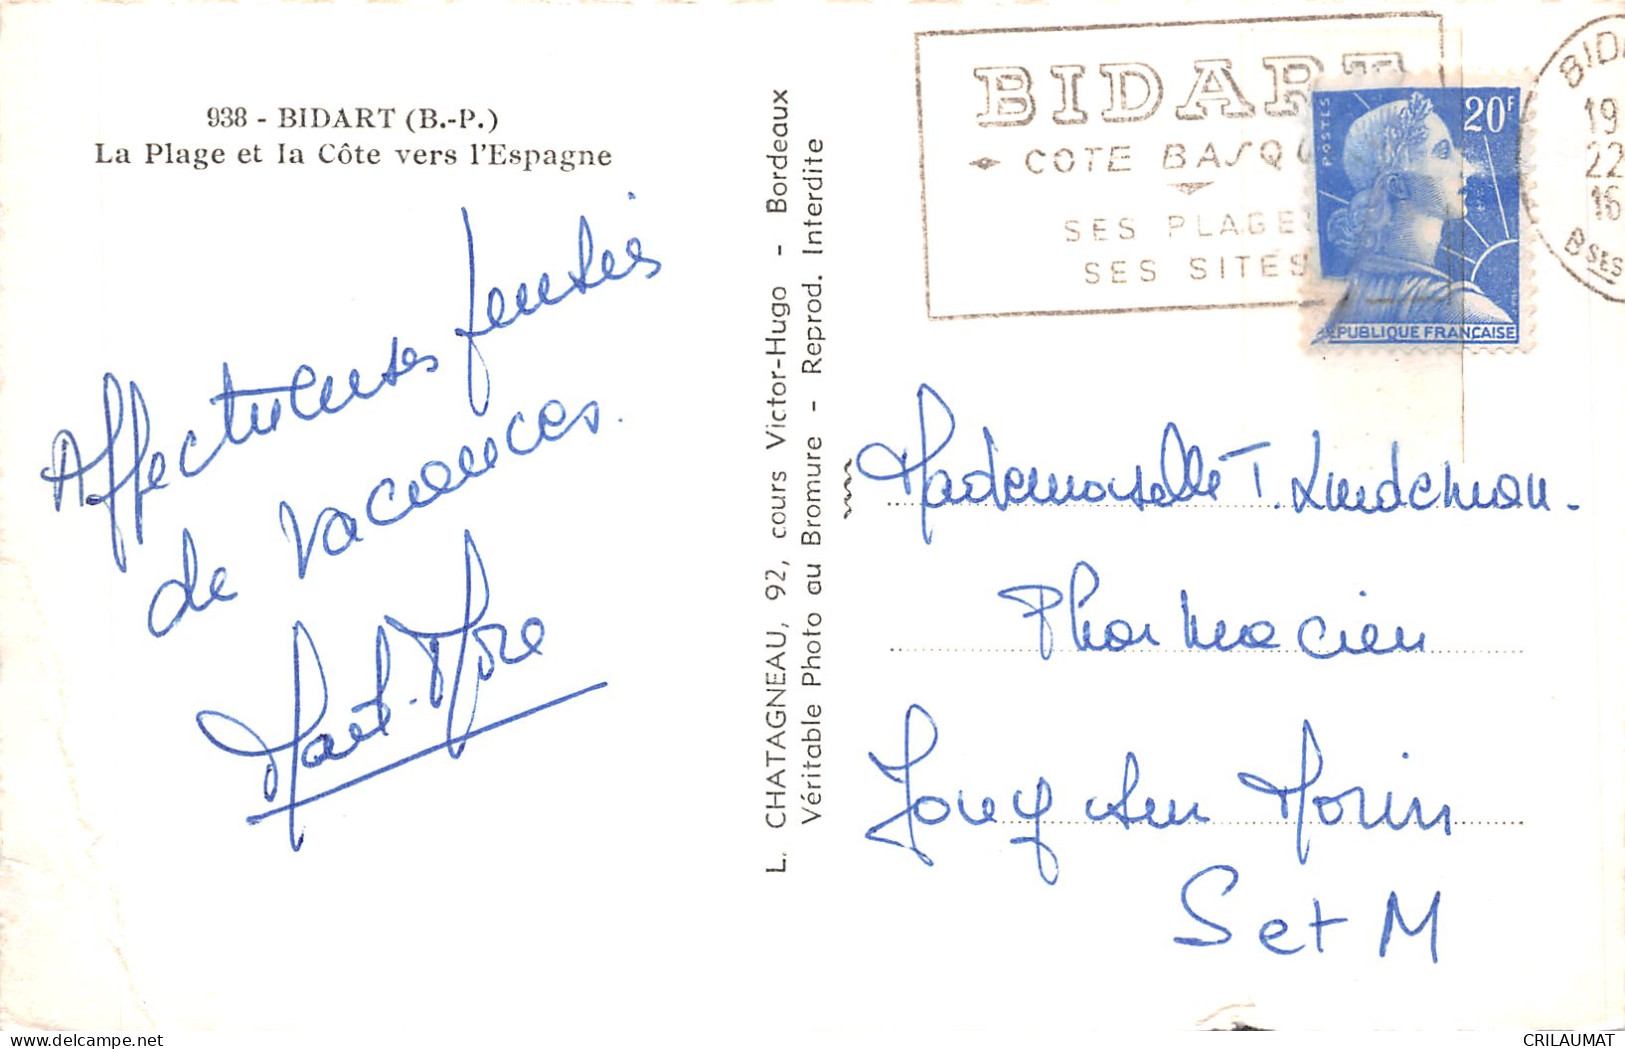 938 - BIDART (B.-P.)
La Plage et la Côte vers l'Espagne
Affectueuses pensées
de vacances.
L. CHATAGNEAU, 92, cours Victor-Hugo - Bordeaux
Véritable Photo au Bromure - Reprod. Interdite
BIDART
COTE BASQU
SES PLAGE
SES SITES
POSTES
20F
EPUBLIQUE FRANÇAISE
BID
19
22
16
BSES
Mademoiselle T.
Pharmacien
Jouy sur Morin
S et M
CRILAUMAT